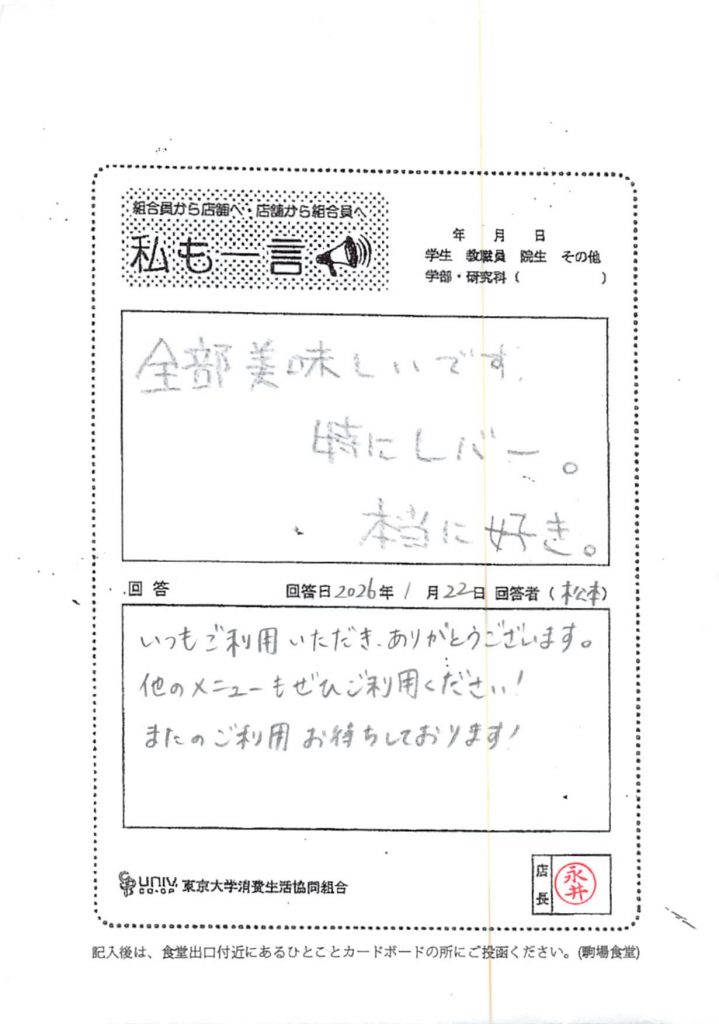 組合員から店舗へ・店舗から組合員へ
私も一言
年 月 日
学生 教職員 院生 その他
学部・研究科( )
全部美味しいです。
特にレバー。
本当に好き。
回答 回答日2026年1月22日 回答者(松本)
いつもご利用いただき、ありがとうございます。
他のメニューもぜひご利用ください!
またのご利用お待ちしております!
UNIV. CO-OP 東京大学消費生活協同組合
店長 永井
記入後は、食堂出口付近にあるひとことカードボードの所にご投函ください。(駒場食堂)